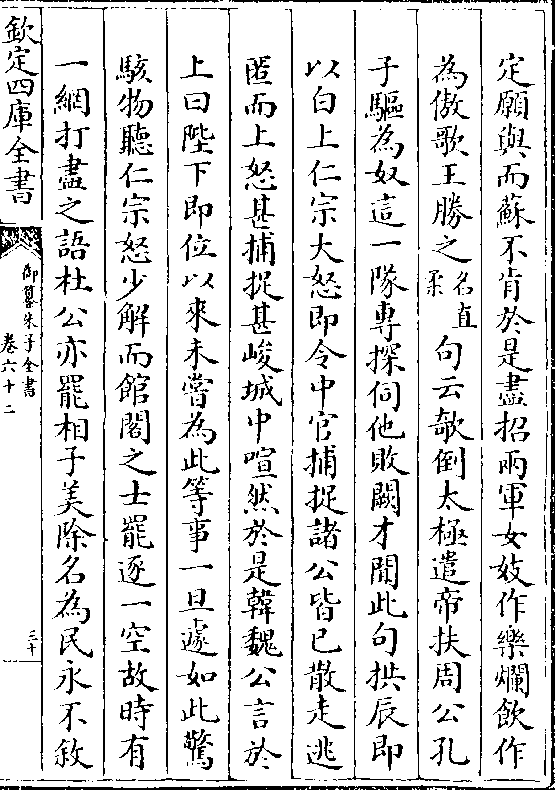 定願與而蘇不肯於是盡招兩軍女妓作樂爛飲作
為傲歌王勝之名直柔句云欹倒太極遣帝扶周公孔
子驅為奴這一隊專探伺他敗闕才聞此句拱辰即
以白上仁宗大怒即令中官捕捉諸公皆已散走逃
匿而上怒甚捕捉甚峻城中喧然於是韓魏公言於
上曰陛下即位以來未嘗為此等事一旦遽如此驚
駭物聽仁宗怒少解而館閣之士罷逐一空故時有
一網打盡之語杜公亦罷相子美除名為民永不敘
欽定四庫全書
御纂朱子全書
卷六十二
三十